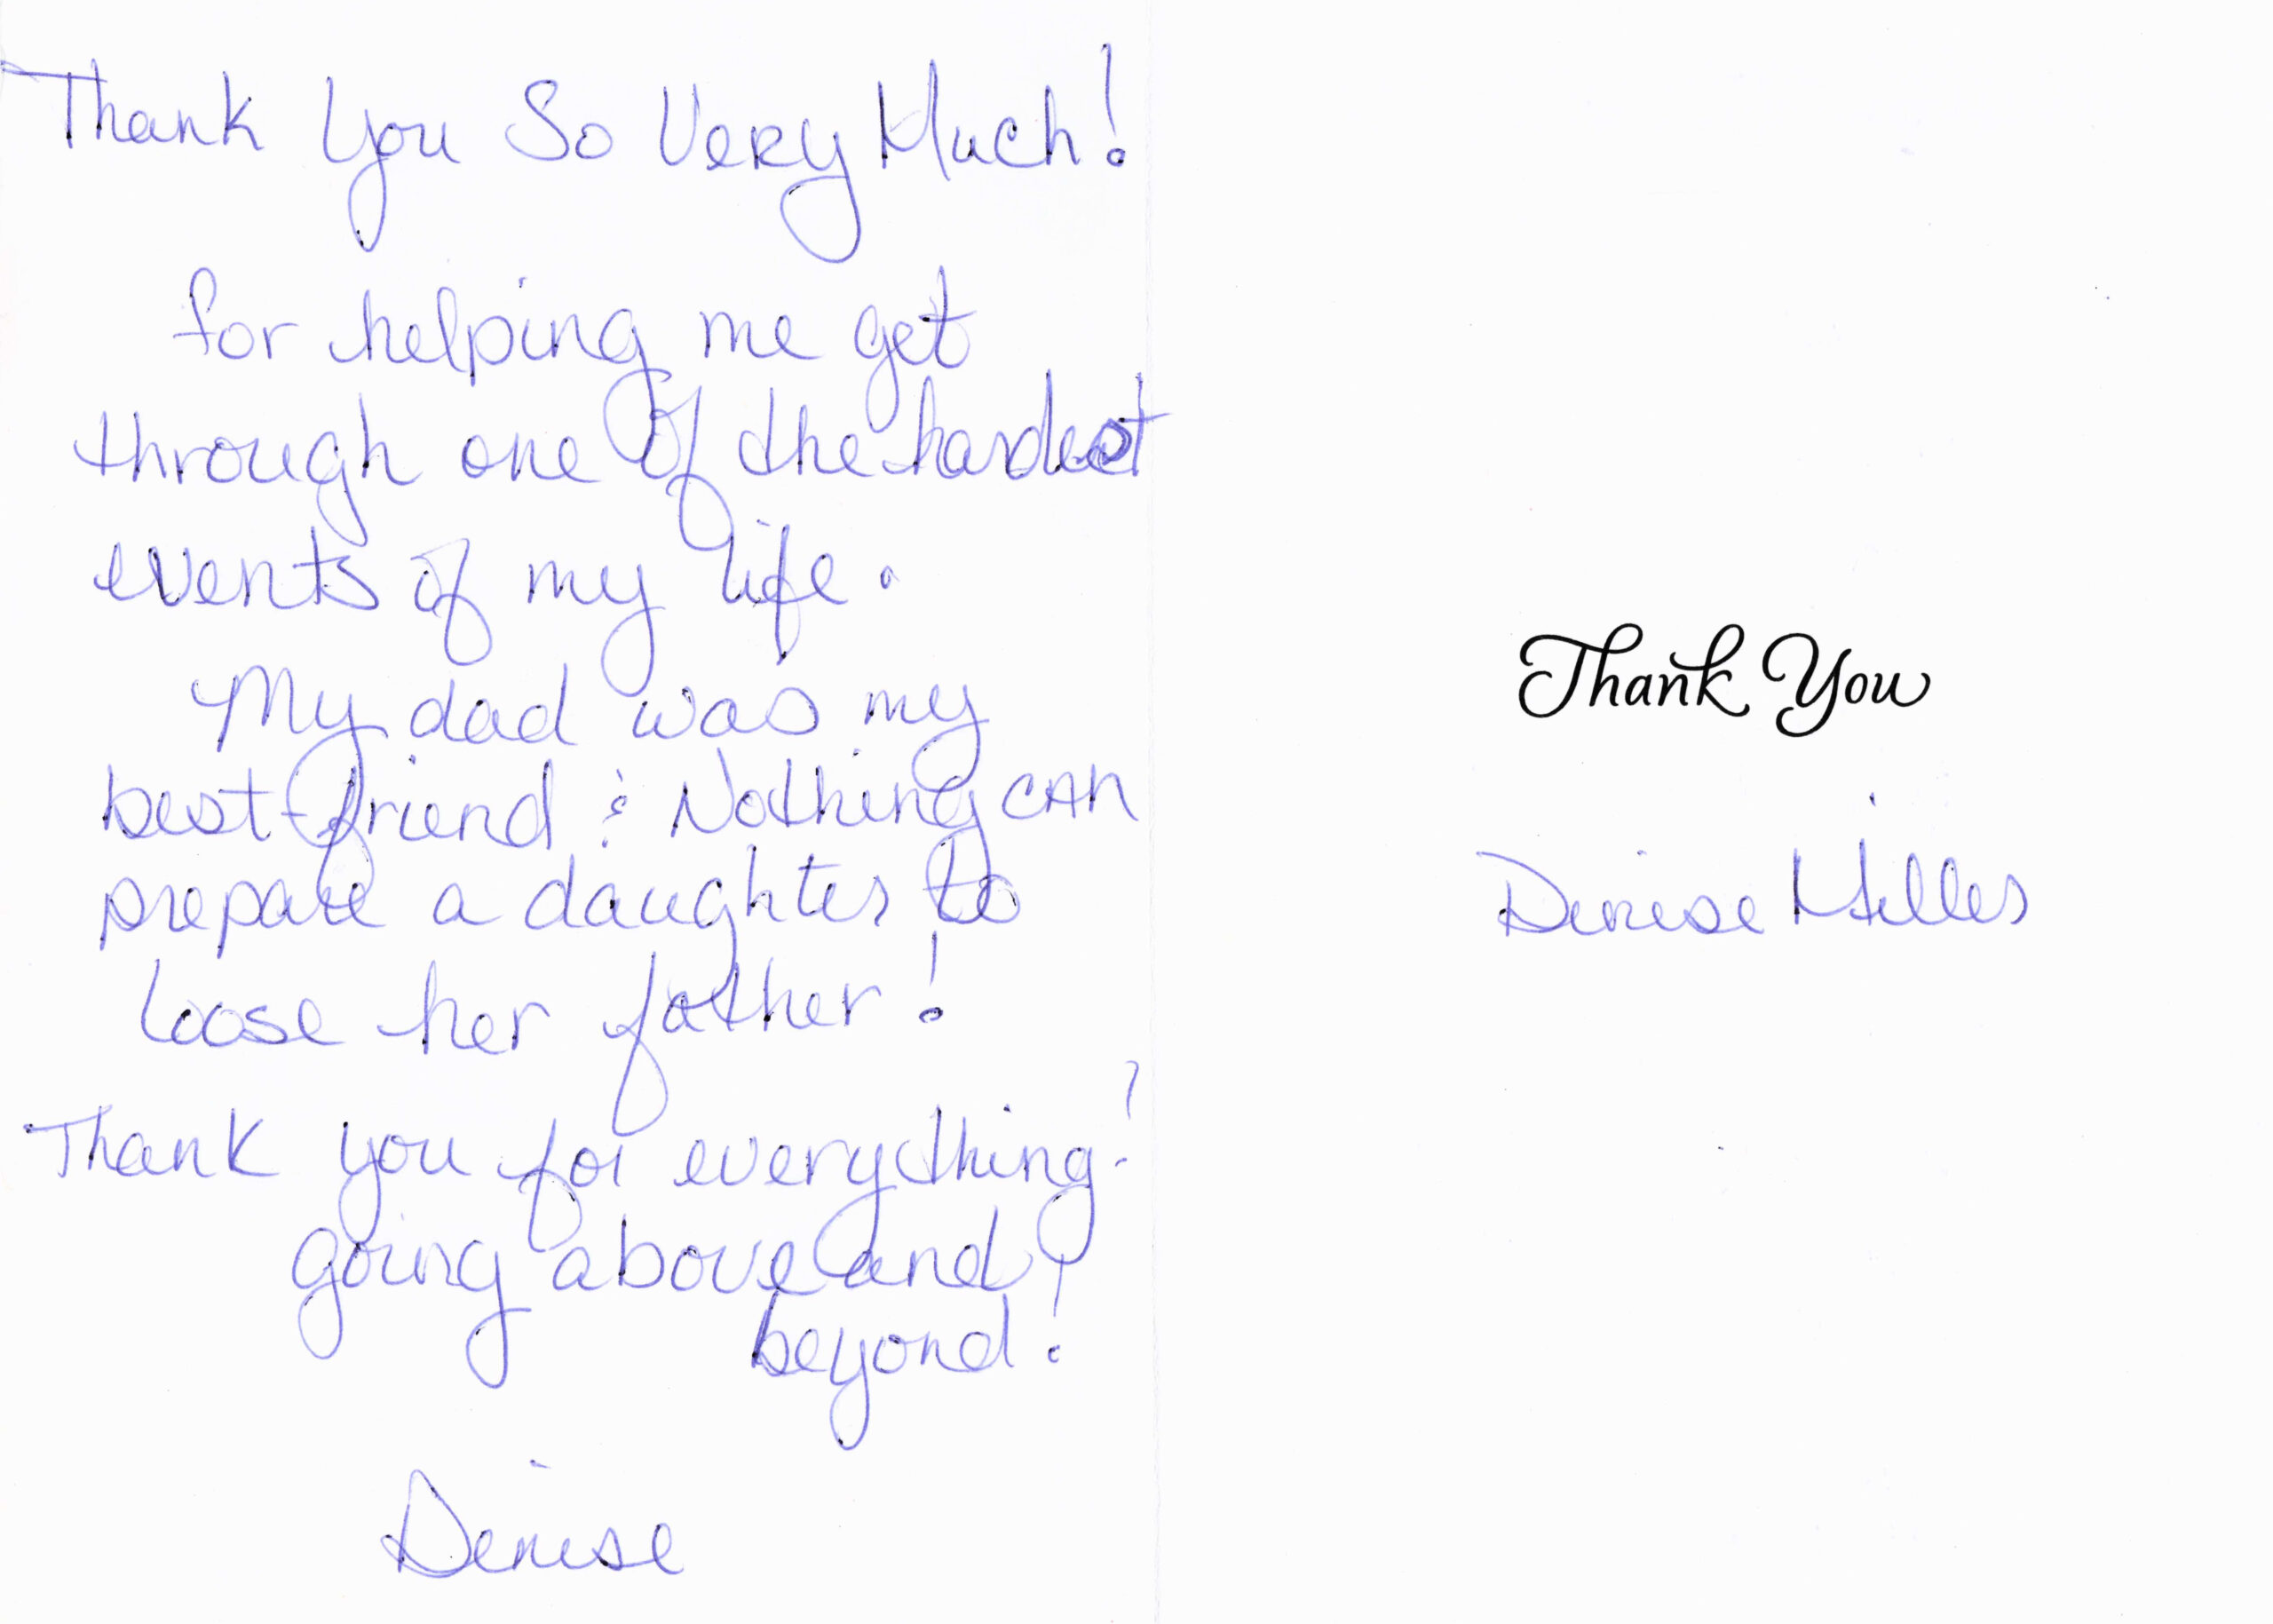 Thank You So Very Much!
for helping me get
through one of the hardest
events of my life.
My dad was my
best friend & Nothing can
prepare a daughter to
loose her father!
Thank you for everything!
going above and
beyond!
Denise
Thank You
Denise Miller